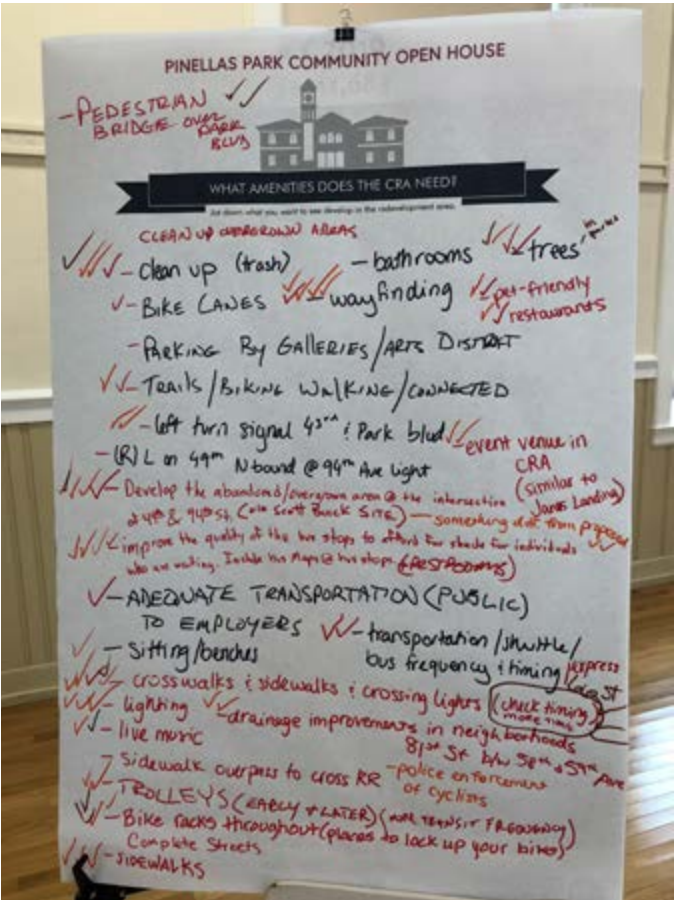 PINELLAS PARK COMMUNITY OPEN HOUSE
- PEDESTRIAN
BRIDGE OVER
PARK
BLVD
WHAT AMENITIES DOES THE CRA NEED?
Jot down what you want to see develop in the redevelopment area.
CLEAN UP OVERGROWN AREAS
- clean up (trash)
- bathrooms
- trees in parks
- BIKE LANES
- wayfinding
pet-friendly
restaurants
- PARKING BY GALLERIES/ARTS DISTRICT
- TRAILS/BIKING WALKING/CONNECTED
- left turn signal 43rd & Park blvd
- event venue in
CRA
(similar to
Janus Landing)
- (R) L on 49th N bound @ 94th Ave light
- Develop the abandoned/overgrown area @ the intersection
of & 94th St. (old Scott SITE) - something from proposed
improve the quality of the bus stops to afford for shade for individuals
who are waiting. Include bus Maps @ bus stops (RESTROOMS)
- ADEQUATE TRANSPORTATION (PUBLIC)
TO EMPLOYERS
- transportation/shuttle/
bus frequency & timing
express
- sitting/benches
- crosswalks & sidewalks & crossing lights (check timing
more time)
- lighting
- drainage improvements in neighborhoods
81st St b/w 58th & 59th Ave
- live music
Sidewalk overpass to cross RR
- police enforcement
of cyclists
- TROLLEYS (EARLY & LATER) (MORE TRANSIT FREQUENCY)
- Bike racks throughout (places to lock up your bikes)
Complete Streets
- SIDEWALKS